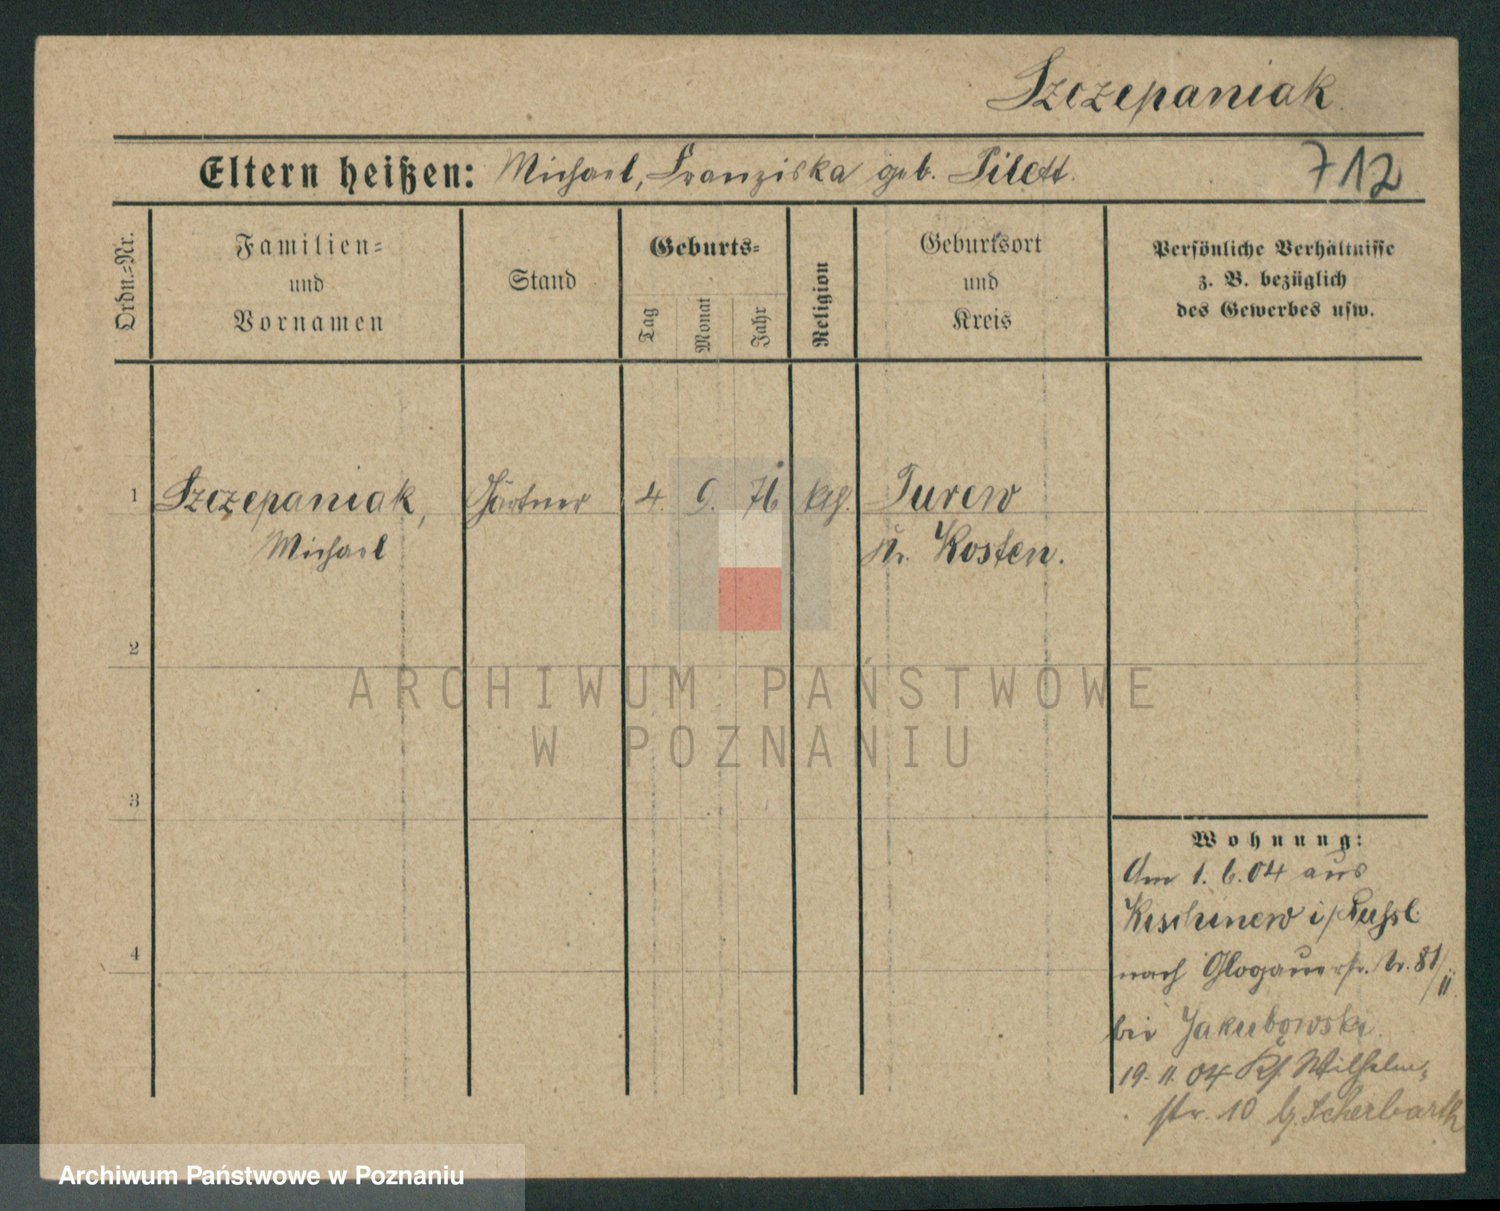 Szczepaniak
Eltern heißen: Michael, Franziska geb. Pilett.
712
Ordn.=Nr.
Familien=
und
Vornamen
Stand
Geburts=
Tag
Monat
Jahr
Religion
Geburtsort
und
Kreis
Persönliche Verhältnisse
z. B. bezüglich
des Gewerbes usw.
1
Szczepaniak, Gärtner 4. 9. 76 kth. Turew
Michael Kr. Kosten.
2
ARCHIWUM PAŃSTWOWE
W POZNANIU
3
4
Wohnung:
Am 1. 6. 04 aus
Kischinew i/Rußl.
nach Glogauerstr. Nr. 81/II
bei Jakubowski
19. 11. 04 Wilhelm=
str. 10 b. Scherbarth
Archiwum Państwowe w Poznaniu